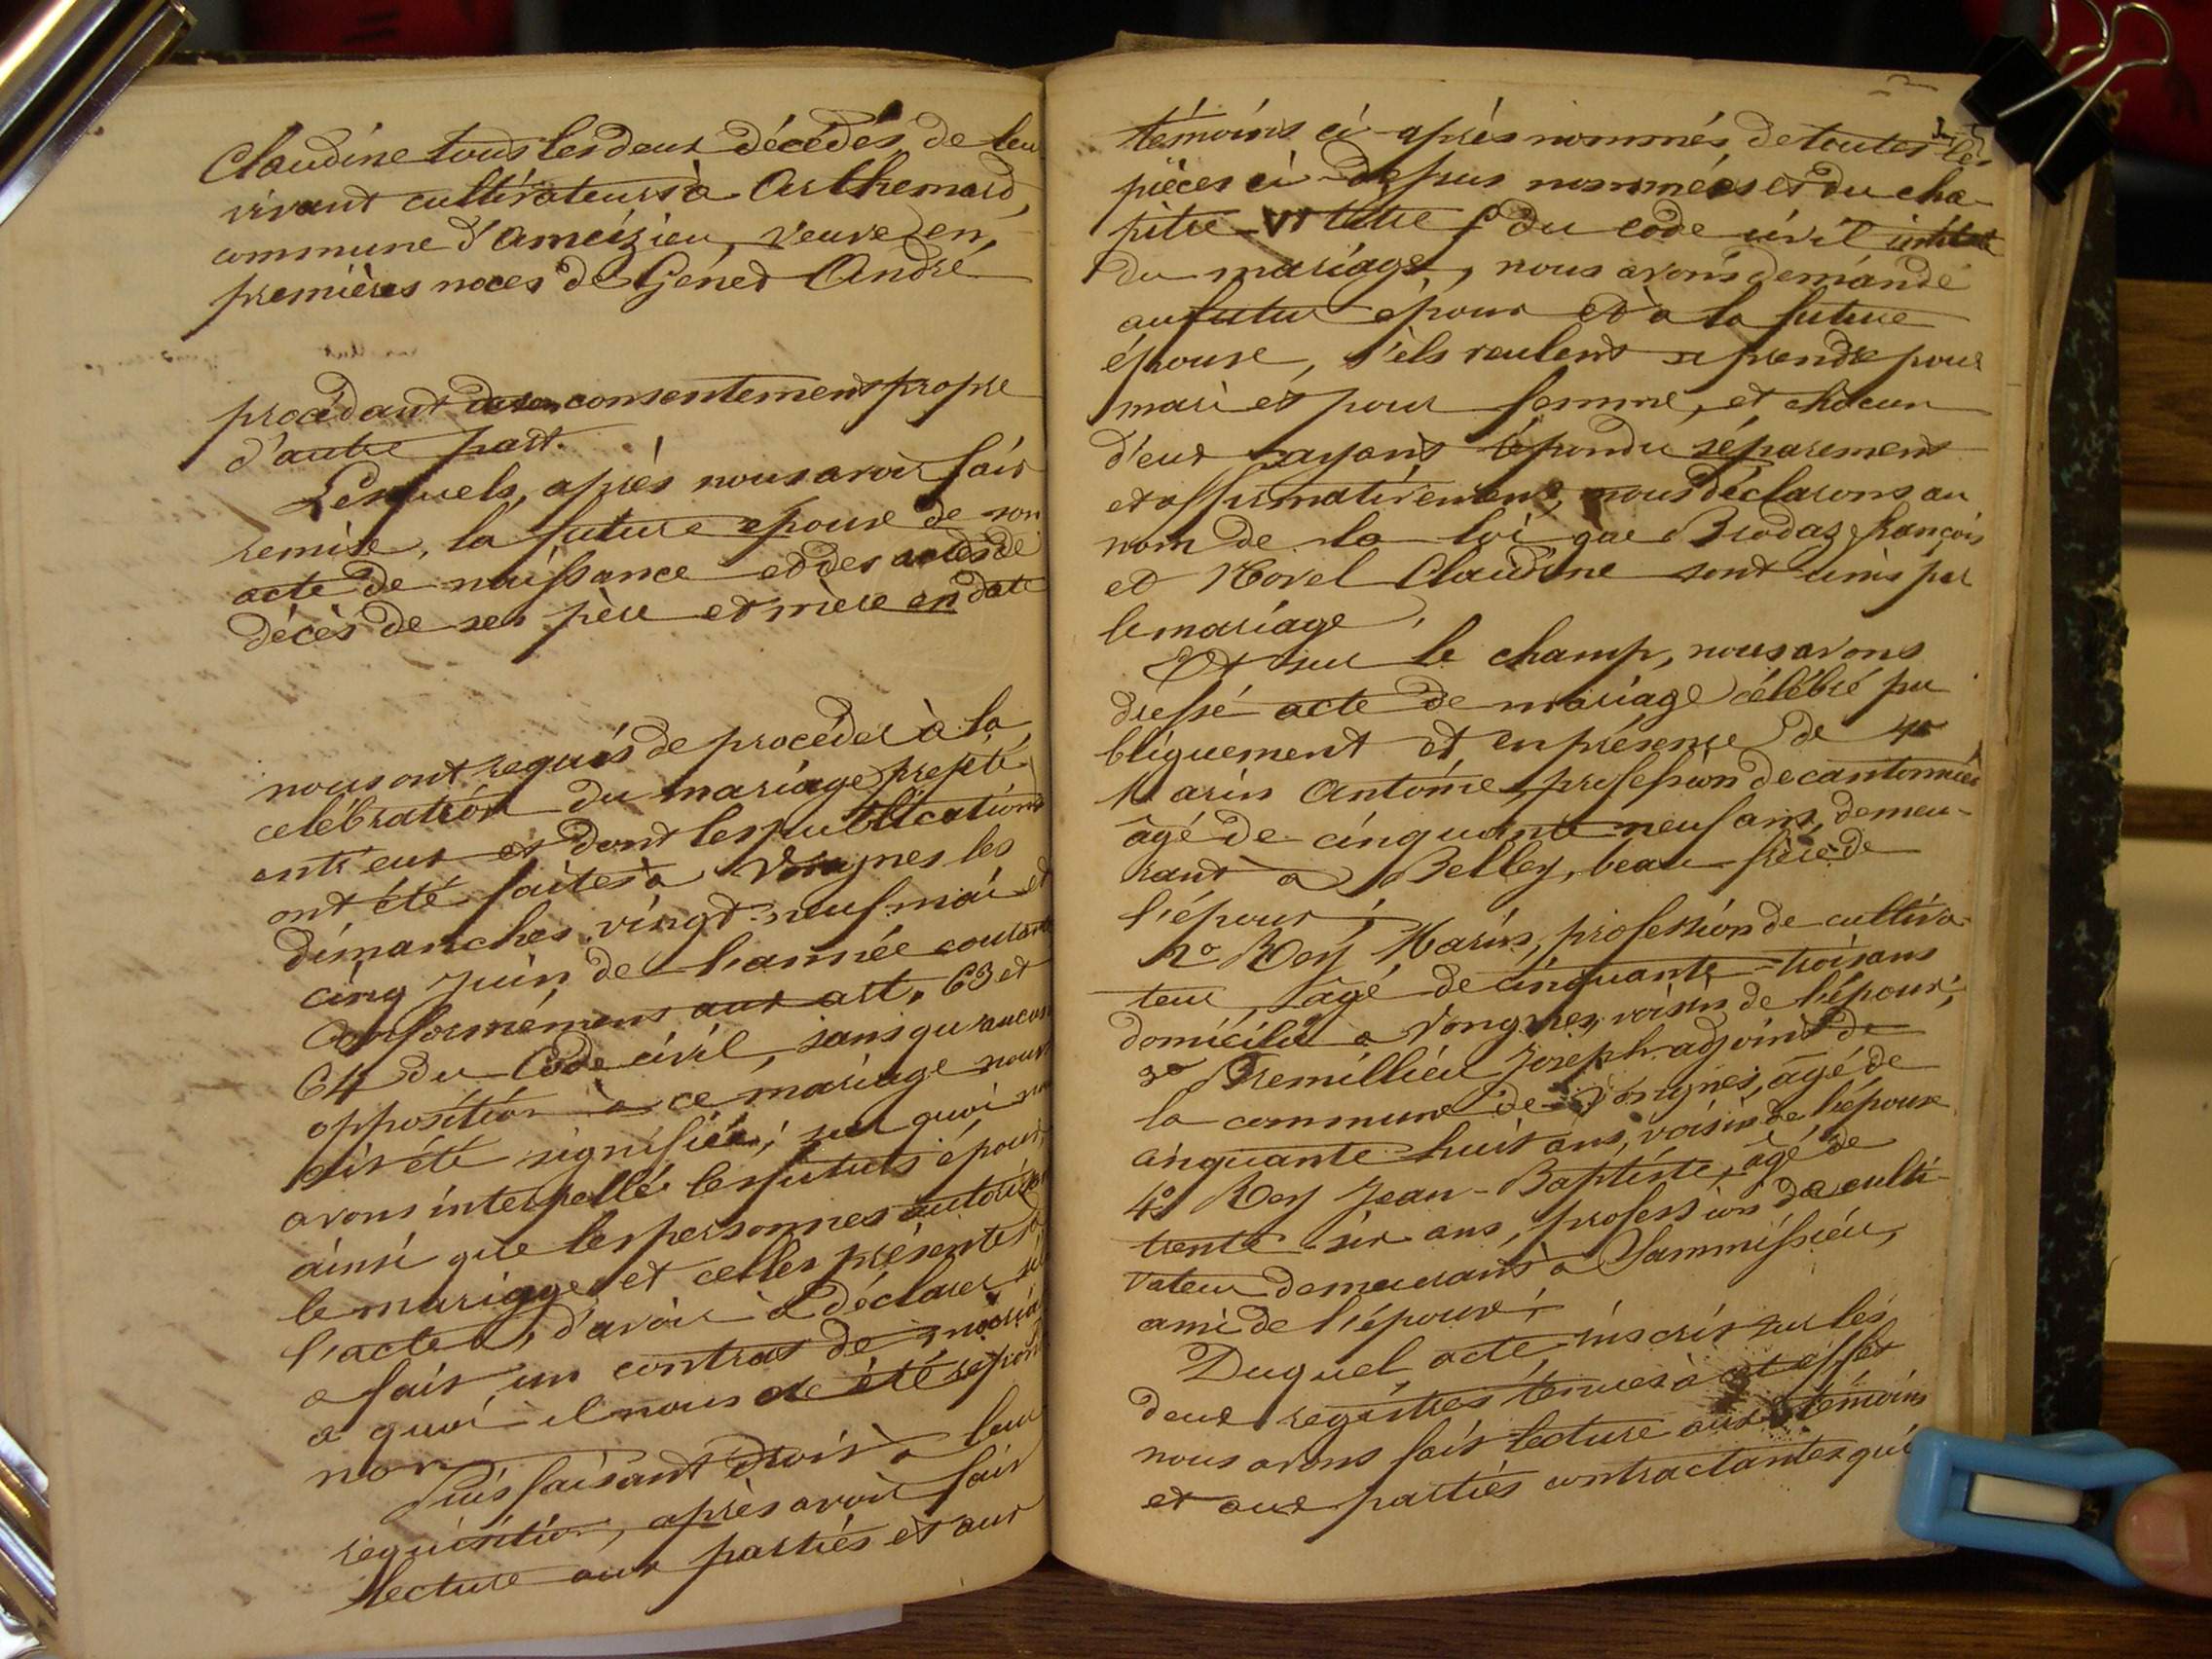 Claudine tous les deux décédés, de leur
vivant cultivateurs à Arthemard,
commune d'Ameizieu, veuve en
premières noces de Genet André
procédant de son consentement propre
d'autre part.
Lesquels, après nous avoir fait
remise, la future épouse de son
acte de naissance et des actes de
décès de ses père et mère en date
nous ont requis de procéder à la
célébration du mariage projeté
entr'eux et dont les publications
ont été faites à Vongnes les
dimanches vingt-neuf mai et
cinq juin de l'année courante
Conformément aux art. 63 et
64 du Code civil, sans qu'aucune
opposition à ce mariage nous
ait été signifiée; sur quoi nous
avons interpellé les futurs époux,
ainsi que les personnes autorisant
le mariage et celles présentes à
l'acte, d'avoir à déclarer s'il
a fait un contrat de mariage
a quoi il nous a été répondu
non
Puis faisant droit à leur
requisition, après avoir fait
lecture aux parties et aux
témoins ci-après nommés, de toutes les
pièces ci-dessus nommées et du cha-
pitre VI titre 5 du code civil intitulé
du mariage, nous avons demandé
au futur époux et à la future
épouse, s'ils veulent se prendre pour
mari et pour femme, et chacun
d'eux ayant répondu séparement
et affirmativement, nous déclarons au
nom de la loi que Brodaz françois
et Morel Claudine sont unis par
le mariage.
Et sur le champ, nous avons
dressé acte de mariage célébré pu
bliquement et en présence de 1o
Marin Antoine, profession de cantonnier
âgé de cinquante neuf ans, demeu-
rant à Belley, beau-frère de
l'époux;
2o Rey Marin, profession de cultiva-
teur, âgé de cinquante-trois ans
domicilié à Vongnes, voisin de l'époux;
3o Tremillieu Joseph adjoint de
la commune de Vongnes, âgé de
cinquante-huit ans, voisin de l'époux
4o Rey Jean-Baptiste, âgé de
trente-six ans, profession de culti-
vateur demeurant à Sammissieu,
ami de l'époux;
Duquel acte, inscrit sur les
deux registres tenues à cet effet
nous avons fait lecture aux témoins
et aux parties contractantes qui